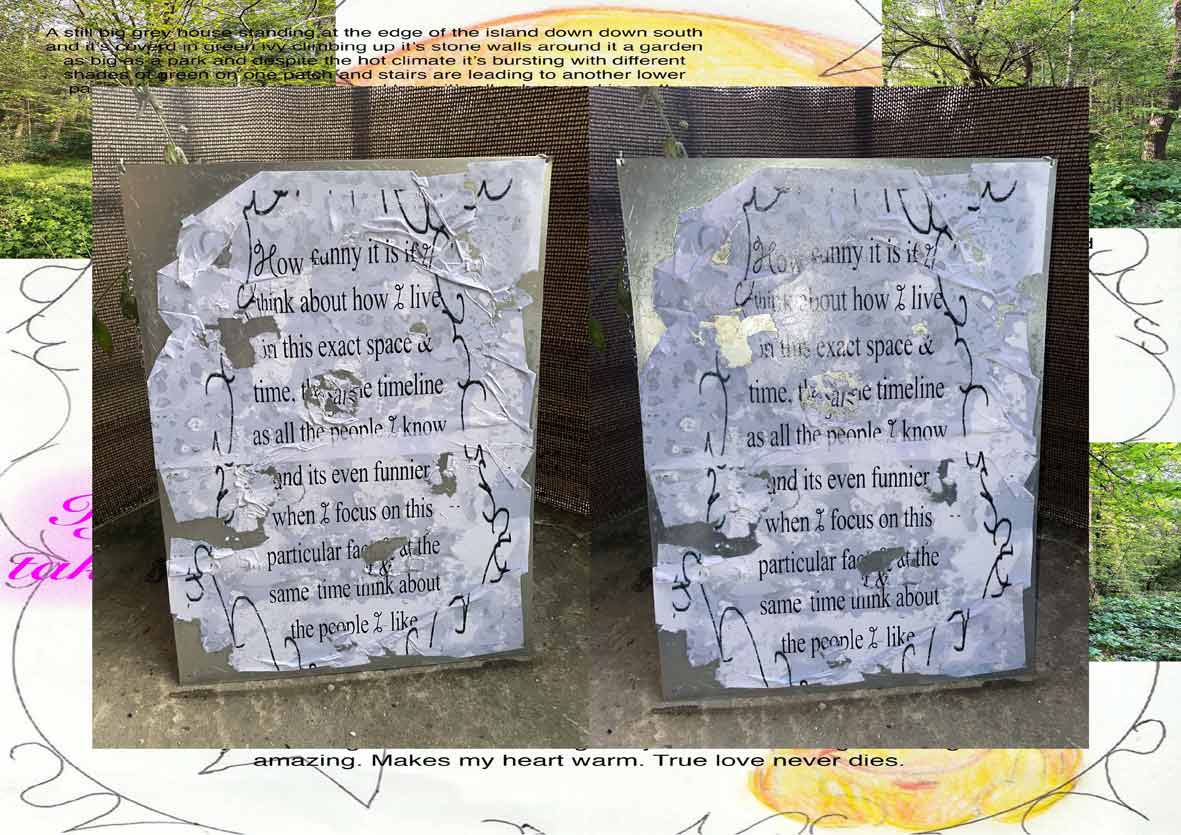 A still big grey house standing at the edge of the island down down south
and it's coverd in green ivy climbing up it's stone walls around it a garden
as big as a park and despite the hot climate it's bursting with different
shades of green on one patch and stairs are leading to another lower
How funny it is if I
think about how I live
in this exact space &
time, timeline
as all the people I know
and its even funnier
when I focus on this
particular at the
&
same time think about
the people I like
How funny it is if I
think about how I live
in this exact space &
time, timeline
as all the people I know
and its even funnier
when I focus on this
particular at the
&
same time think about
the people I like
amazing. Makes my heart warm. True love never dies.